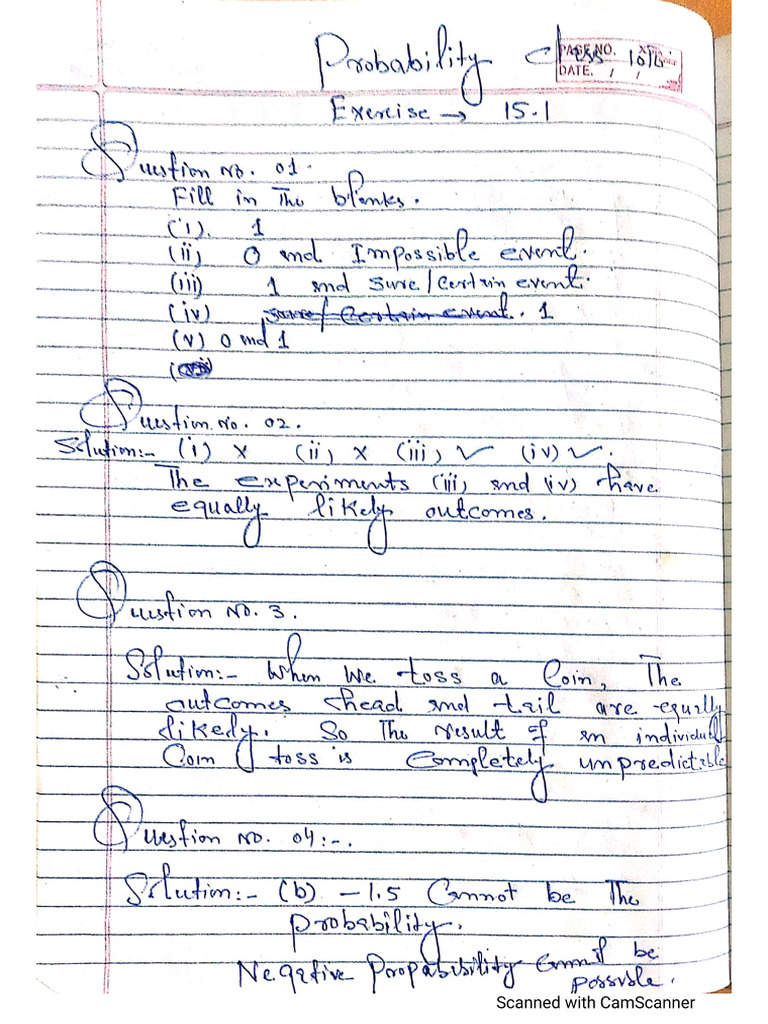 Probability class 10th
PAGE NO.
DATE. / /
Exercise → 15.1
Question No. 01.
Fill in The blanks.
(i). 1
(ii) 0 and Impossible event.
(iii) 1 and Sure/Certain event.
(iv) sure/Certain event. 1
(v) 0 and 1
Question No. 02.
Solution:- (i) × (ii) × (iii) ✓ (iv) ✓.
The experiments (iii) and (iv) have
equally likely outcomes.
Question No. 3.
Solution:- When we toss a Coin, The
outcomes head and tail are equally
likely. So The result of an individual
Coin toss is completely unpredictable
Question No. 04:-.
Solution:- (b) -1.5 Cannot be The
Probability.
Negative Propabibility cannot be
possible.
Scanned with CamScanner